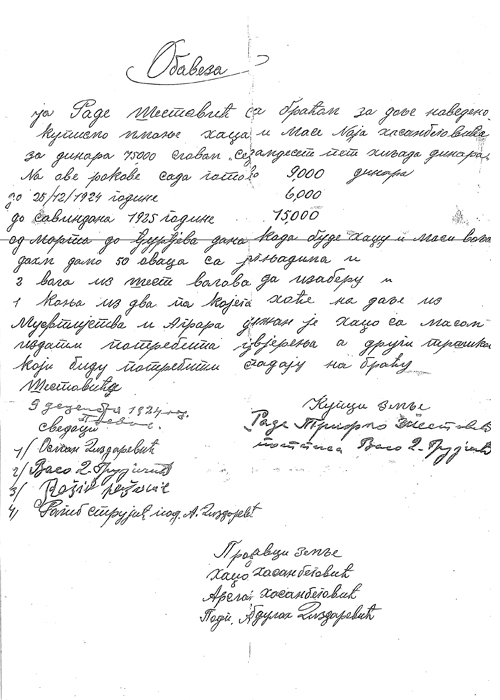 Обавеза
ја Раде Шестовић са браћом за доље наведено
куписмо имање хаџа и Масе Хасанбеговића
за динара 75000 словом седамдесет пет хиљада динара
На ове рокове сада готово 9,000 динара
до 25/12/1924 године 6,000
до савиндана 1925 године 15,000
од марта до Ђурђева дана када буде хаџу и Маси
дамо 50 оваца са јањадима и
2 вола из шест волова да изаберу и
1 коња из два па којега хоће на даље из
Муфтијства и Аграра дужан је хаџо са Масом
издати потребита увјерења а други трошкови
који буду потребити падају на браћу
Шестовиће
9 децембра 1924 год.
Сведоци
1/ Осман Диздаревић
2/ Васо Д. Грујичић
3/
4/ под. А. Диздаревић
Купци земље
Раде Трифко Шестовић
потписа Васо Д. Грујичић
Продавци земље
Хаџо Хасанбеговић
Хасанбеговић
Подп. Адулах Диздаревић